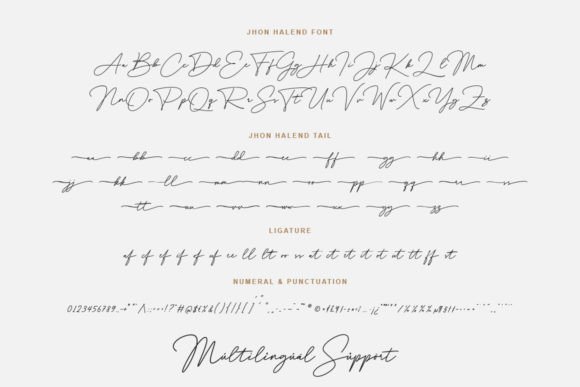 JHON HALEND FONT
Aa Bb Cc Dd Ee Ff Gg Hh Ii Jj Kk Ll Mm
Nn Oo Pp Qq Rr Ss Tt Uu Vv Ww Xx Yy Zz
JHON HALEND TAIL
aa bb cc dd ee ff gg hh ii
jj kk ll mm nn oo pp qq rr ss
tt uu vv ww xx yy zz
LIGATURE
af cf ef if of uf ee ll lt or ss at ct et it ot ut tt ff st
NUMERAL & PUNCTUATION
0123456789
Múltilingúàl Sûppört